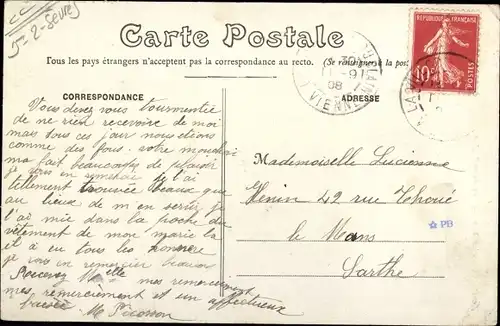 5= 2-Sevres
Carte Postale
Tous les pays étrangers n'acceptent pas la correspondance au recto. (Se renseigner à la pos
CORRESPONDANCE
ADRESSE
REPUBLIQUE FRANÇAISE
10c
POSTES
VIENNE
08
Vous devez vous tourmentée
de ne rien recevoire de moi
mais tous ces jour nous etions
comme des fous. votre mouchoir
ma fait beaucoup de plaisir
je vous en je l'ai
tellement trouvée beaux que
au lieux de m'en servir je
l'ai mie dans la poche du
vêtement de mon marie la
il a eu tous les
je vous en remercier beaucou
Recevez Melle mes remerciment
mes remerciement et un affectueux
baisée Me Picorson
Mademoiselle Lucienne
Henin 42 rue Thoré
le Mans
Sarthe
PB